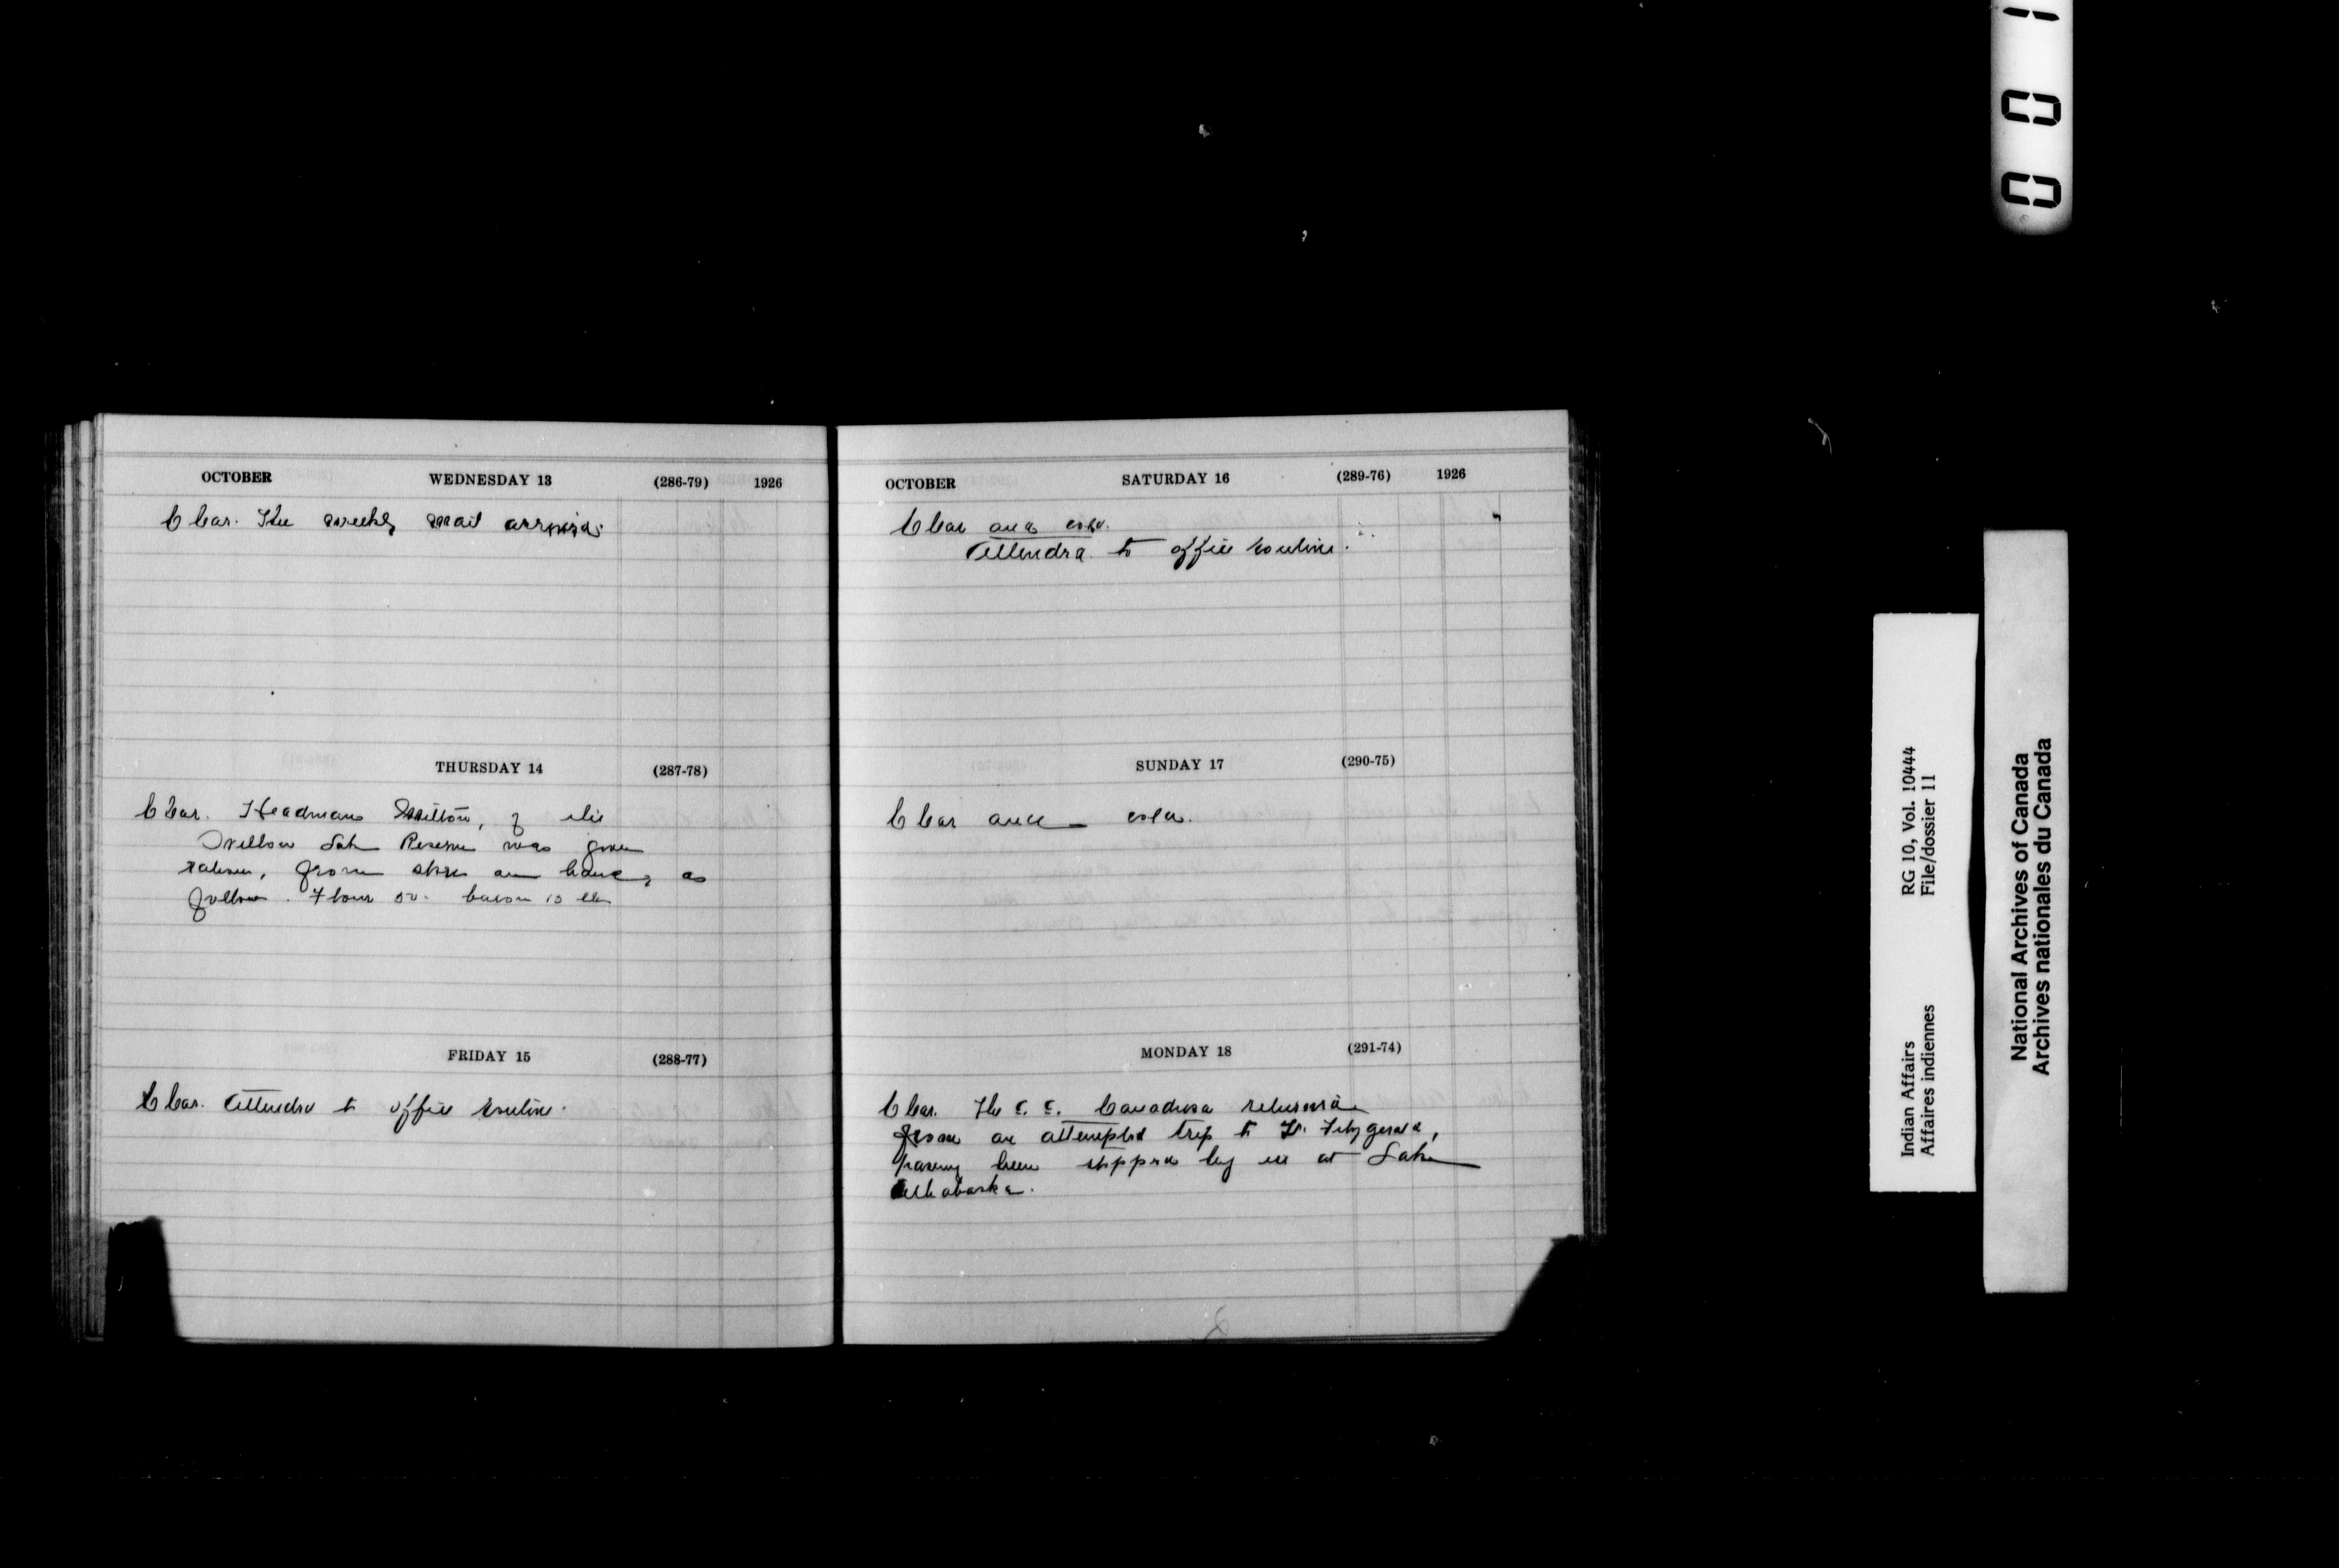 OCTOBER WEDNESDAY 13 (286-79) 1926
Clear. The weekly mail arrived.
THURSDAY 14 (287-78)
Clear. Headman of the
Willow Lake Reserve was given
rations, from store on hand, as
follows. Flour 50. bacon 10 lbs
FRIDAY 15 (288-77)
Clear. Attended to office routine.
OCTOBER SATURDAY 16 (289-76) 1926
Clear and cold.
Attended to office routine.
SUNDAY 17 (290-75)
Clear and cold.
MONDAY 18 (291-74)
Clear. The Canadusa returned
from an attempted trip to Ft. Fitzgerald,
having been stopped by ice at Lake
Athabaska.
Indian Affairs RG 10, Vol. 10444
Affaires indiennes File/dossier 11
National Archives of Canada
Archives nationales du Canada